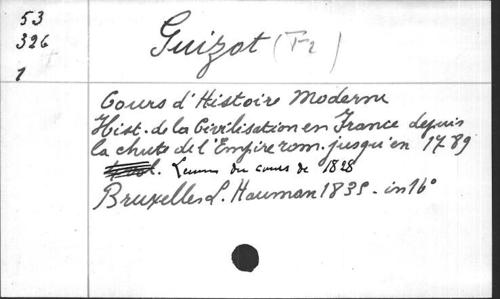 53
326
1
Guizot (Fr)
Cours d'Histoire Moderne
Hist. de la Civilisation en France depuis
la chute de l'Empire rom. jusqu'en 1789
vol. Lecons du cours de 1828
Bruxelles L. Hauman 1835. in 16°